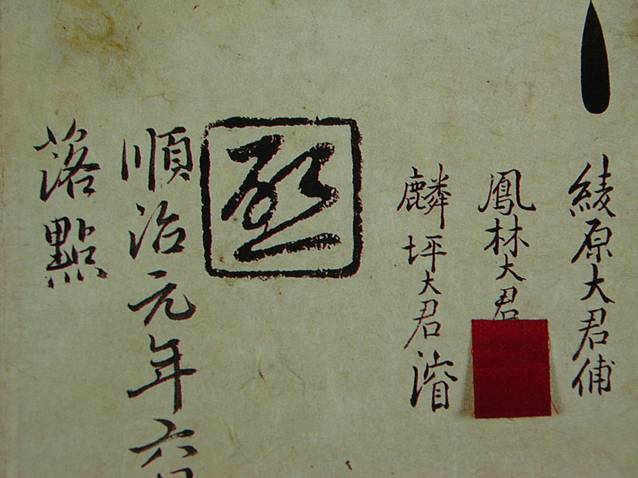 綾原大君俌
鳳林大君
麟坪大君㴭
啓
順治元年六
落點